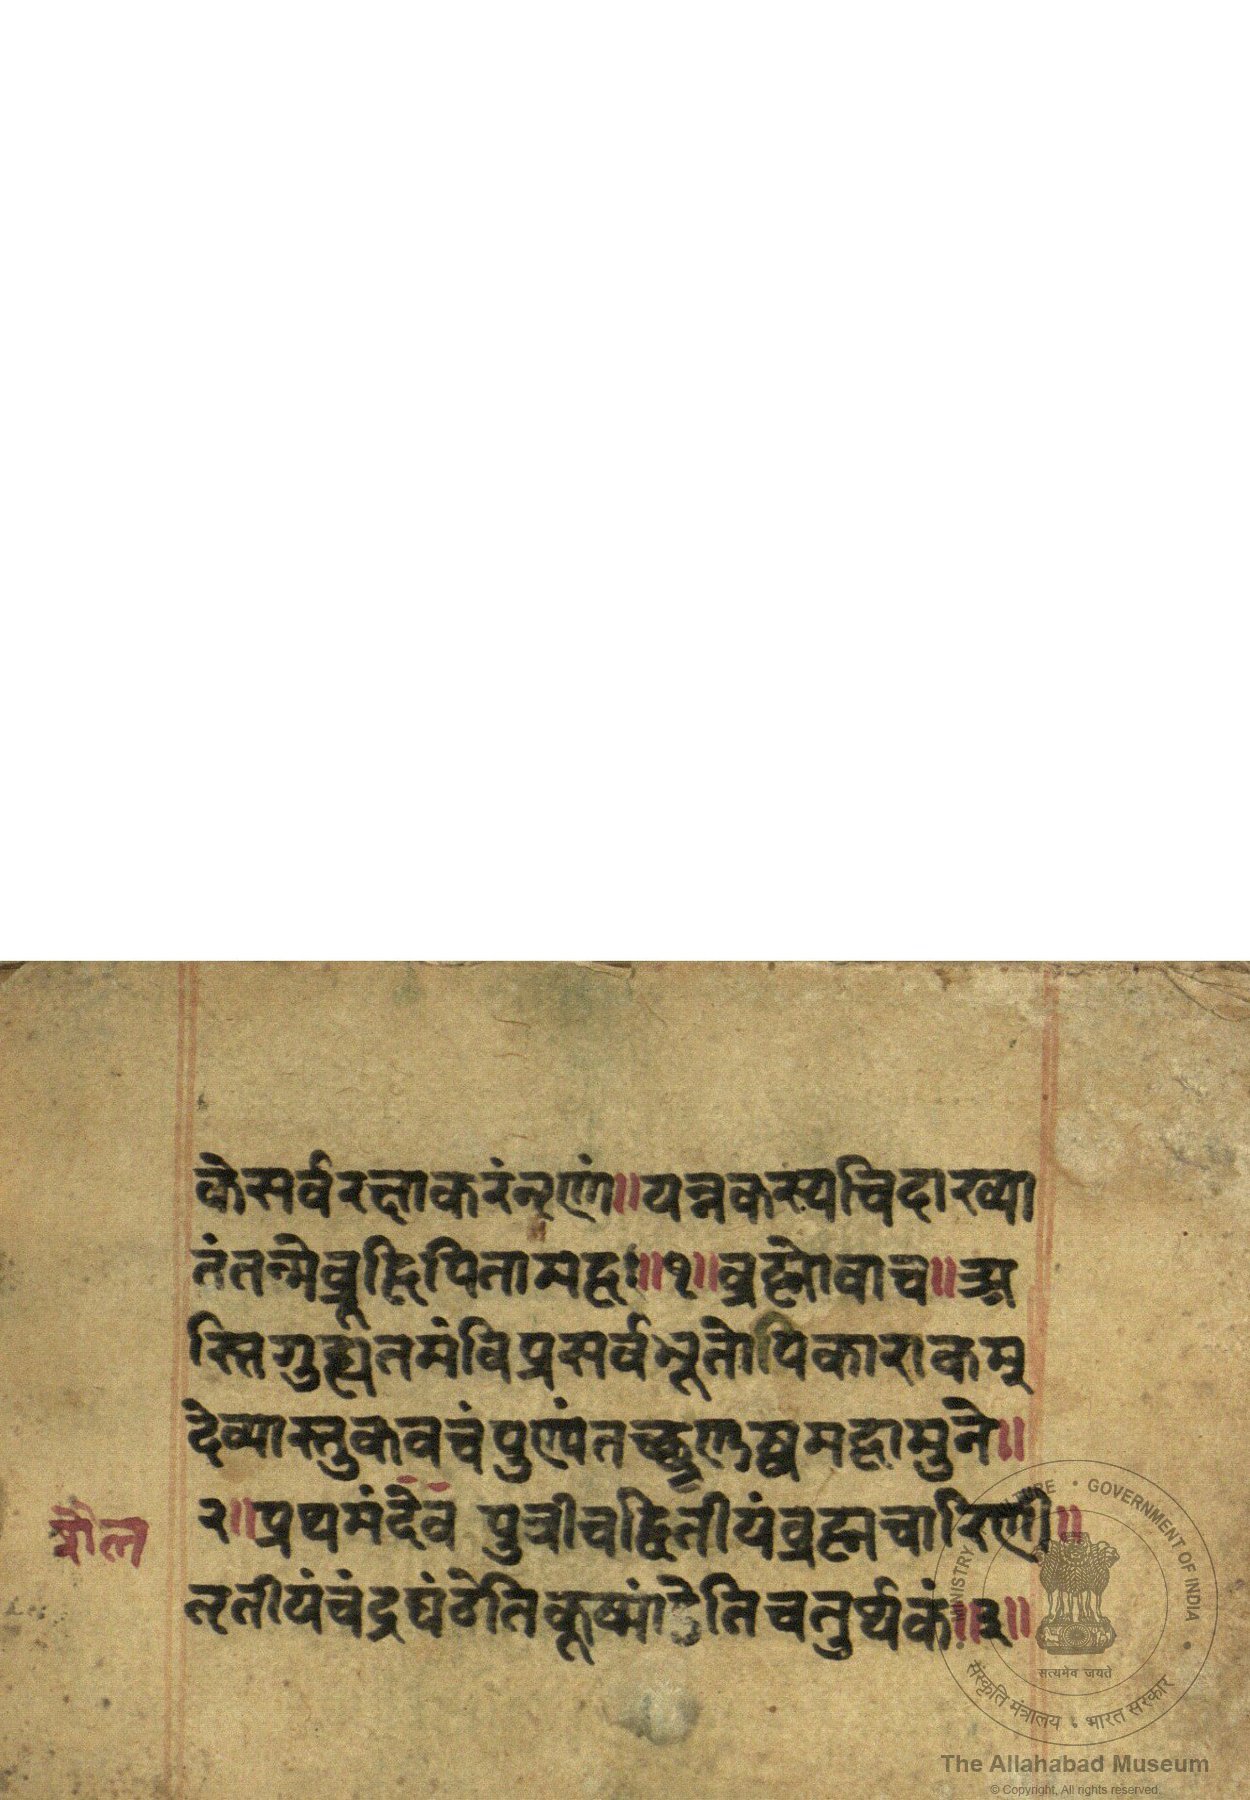 के सर्वरक्षाकरंनृणां॥यन्नकस्यचिदाख्या
तंतन्मेब्रूहिपितामह॥१॥ब्रह्मोवाच॥अ
स्तिगुह्यतमंविप्रसर्वभूतोपिकाराकम्
देव्यास्तुकवचंपुण्यंतच्छृणुष्वमहामुने॥
शैल
२॥प्रथमंदेव पुत्रीचद्वितीयंब्रह्मचारिणी॥
तृतीयंचंद्रघंटेतिकूष्मांडेतिचतुर्थकं॥३॥
MINISTRY CULTURE • GOVERNMENT OF INDIA •
सत्यमेव जयते
संस्कृति मंत्रालय • भारत सरकार
The Allahabad Museum
© Copyright, All rights reserved.